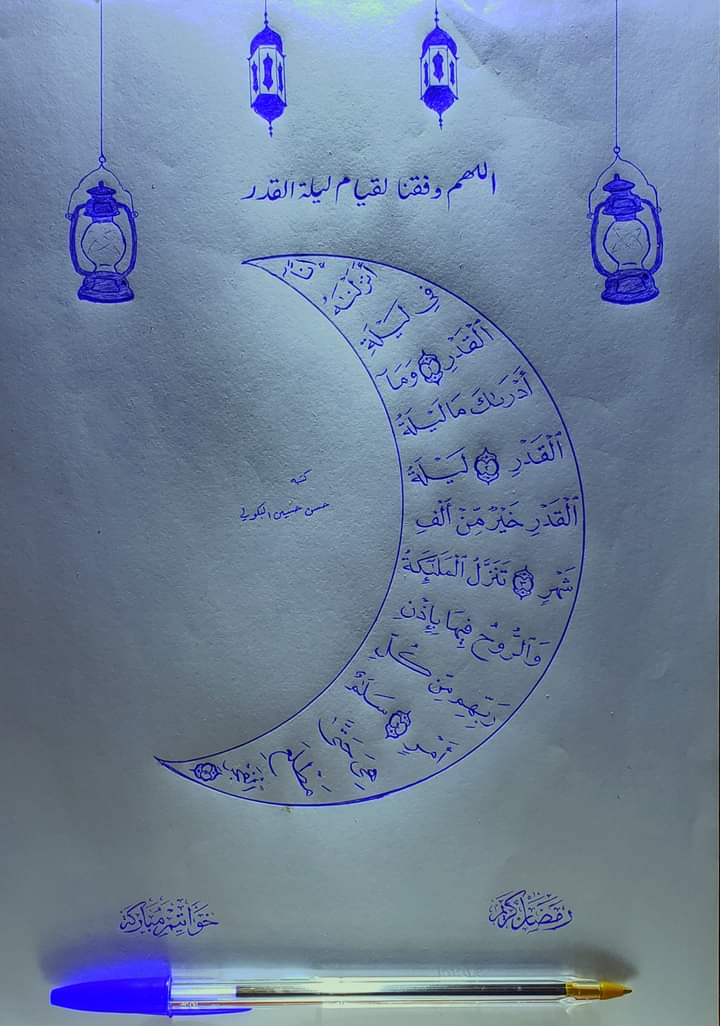 اللهم وفقنا لقيام ليلة القدر
إِنَّآ
أَنزَلْنَٰهُ
فِى لَيْلَةِ
ٱلْقَدْرِ ١ وَمَآ
أَدْرَىٰكَ مَا لَيْلَةُ
ٱلْقَدْرِ ٢ لَيْلَةُ
ٱلْقَدْرِ خَيْرٌ مِّنْ أَلْفِ
شَهْرٍ ٣ تَنَزَّلُ ٱلْمَلَٰٓئِكَةُ
وَٱلرُّوحُ فِيهَا بِإِذْنِ
رَبِّهِم مِّن كُلِّ
أَمْرٍ ٤ سَلَٰمٌ
هِىَ حَتَّىٰ
مَطْلَعِ
ٱلْفَجْرِ ٥
كتبه
حسن حسين
رمضان كريم
خواتم مباركة